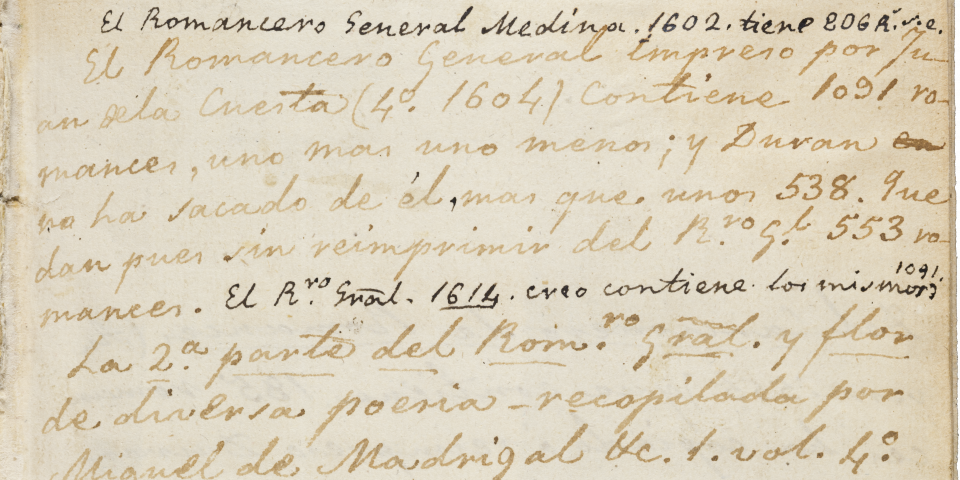 El Romancero General Medina. 1602. tiene 806 R.s s.e.
El Romancero General impreso por Ju-
an de la Cuesta (4.º 1604) Contiene 1091 ro-
mances, uno mas uno menos; y Duran en
no ha sacado de él, mas que unos 538. Que
dan pues sin reimprimir del R.ro G.l 553 ro-
mances. El R.ro Gral. 1614. creo contiene los mismos 1091.
La 2.ª parte del Rom.ro Gral. y flor
de diversa poesia - recopilada por
Miguel de Madrigal &c. 1. vol. 4.º